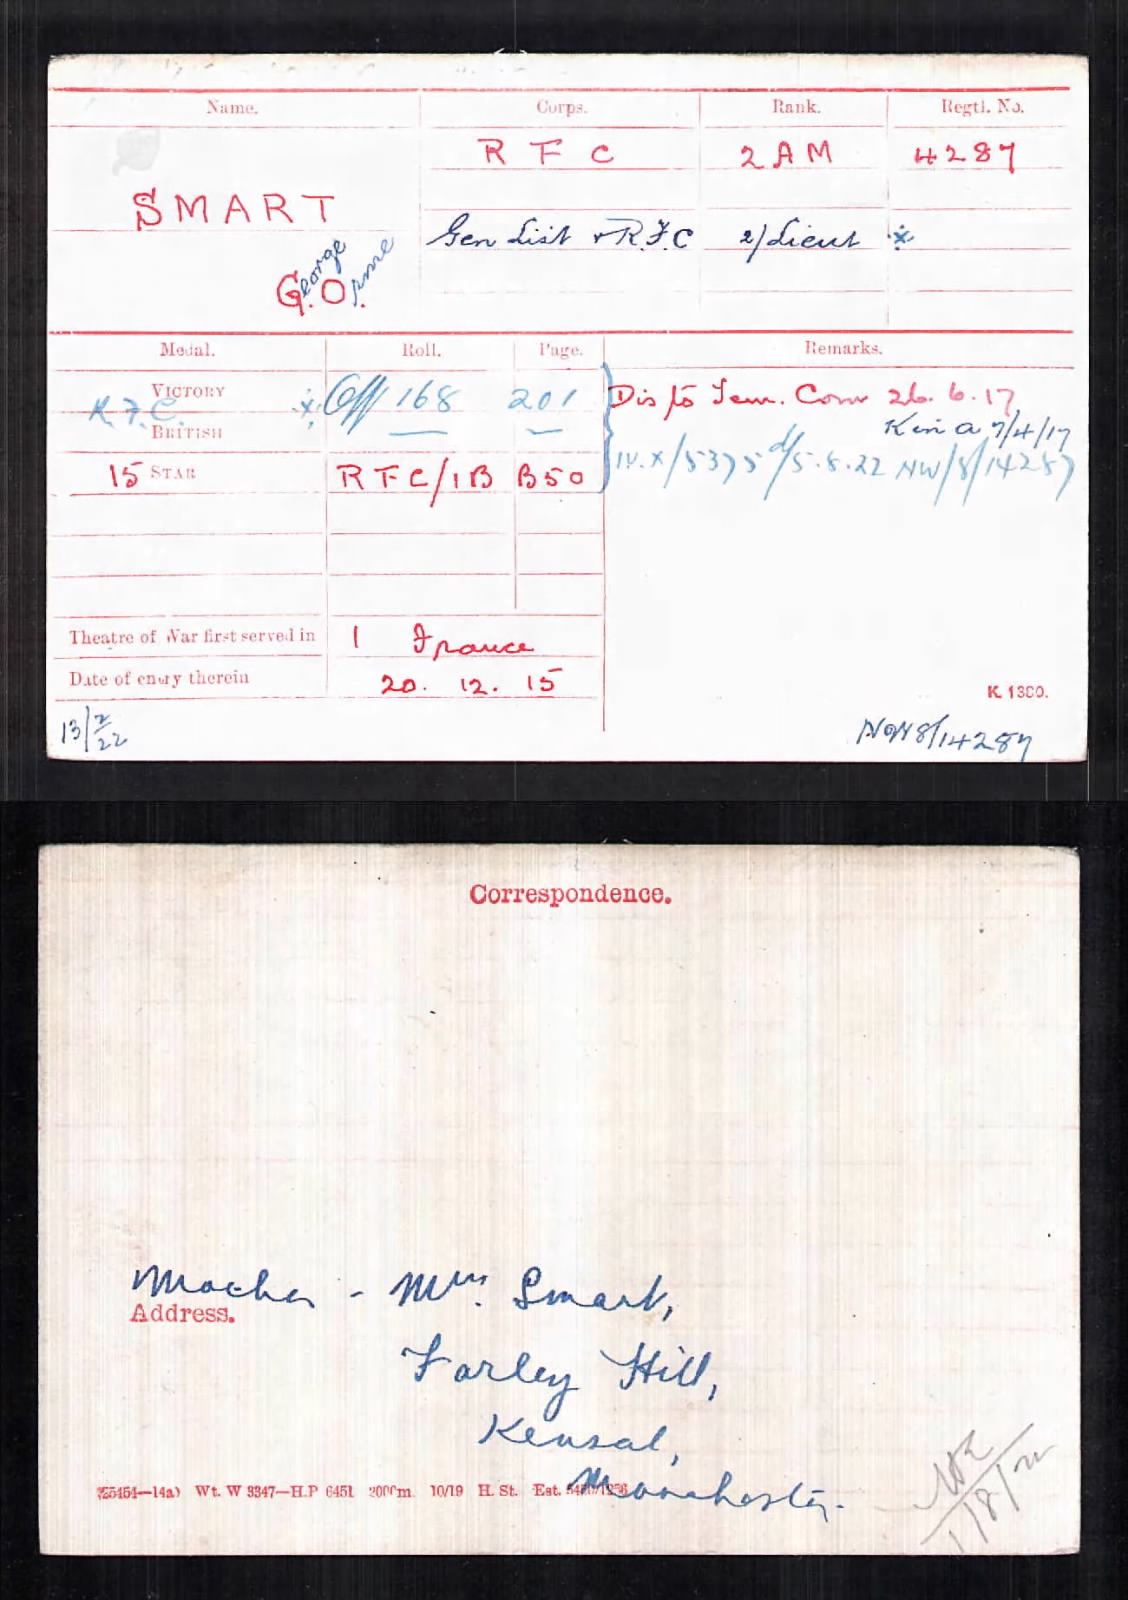 Name. Corps. Rank. Regtl. No.
R F C 2 A M 4287
SMART
Gen List & R.F.C 2/Lieut *
G.eorge O.rme
Medal. Roll. Page. Remarks.
VICTORY * Off 168 201 Dis to Tem. Com 26.6.17
R.F.C.
BRITISH K in a 7/4/17
IV.X/5375 d/5.8.22 NW/8/14287
15 STAR RFC/1B B50
Theatre of War first served in 1 France
Date of entry therein 20. 12. 15
K. 1380.
13/2/22 NW8/14287
Correspondence.
Mother - Mrs. Smart,
Address.
Farley Hill,
Kensal,
Manchester.
Wt. W 3347—H.P 6451 2000m. 10/19 H. St. Est.
1/8/22